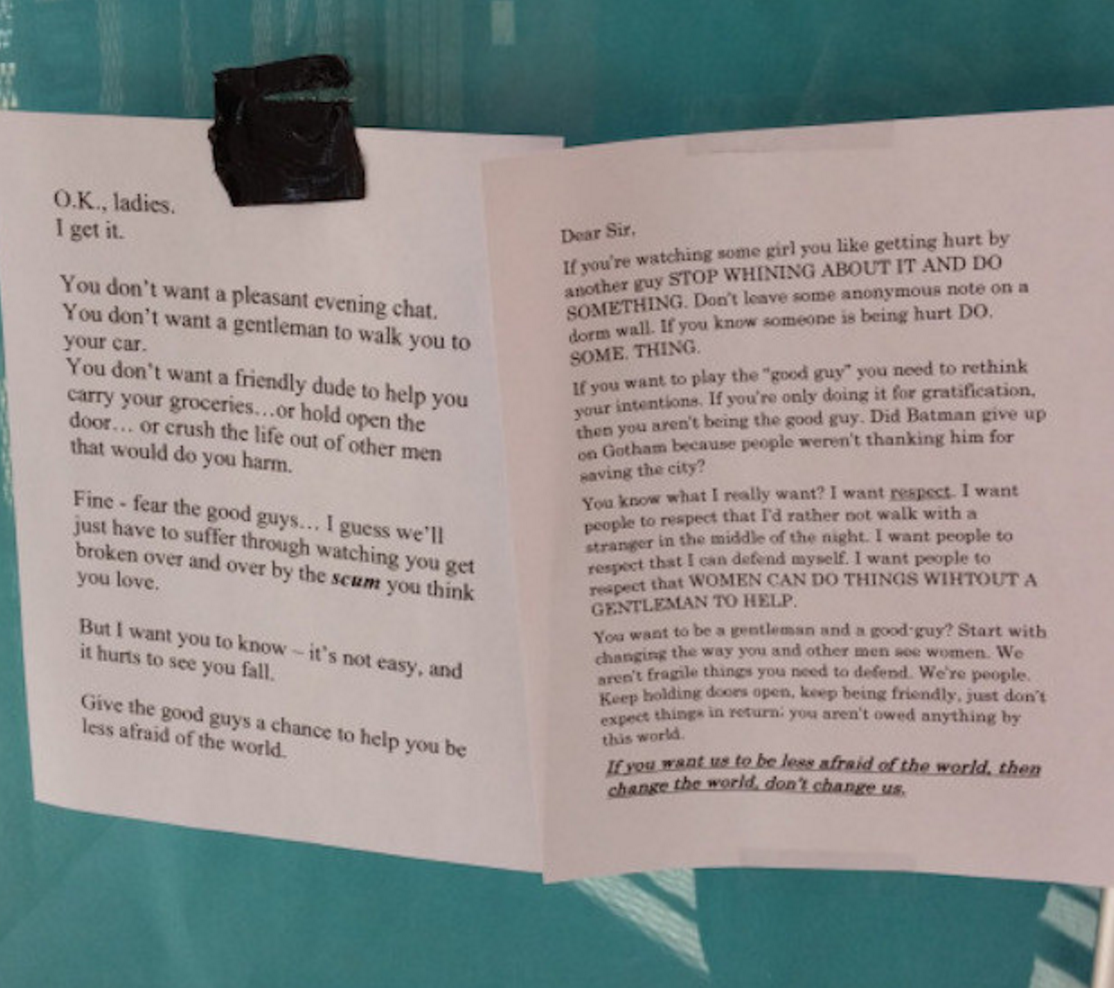 O.K., ladies.
I get it.
You don't want a pleasant evening chat.
You don't want a gentleman to walk you to
your car.
You don't want a friendly dude to help you
carry your groceries…or hold open the
door… or crush the life out of other men
that would do you harm.
Fine - fear the good guys… I guess we'll
just have to suffer through watching you get
broken over and over by the scum you think
you love.
But I want you to know – it's not easy, and
it hurts to see you fall.
Give the good guys a chance to help you be
less afraid of the world.
Dear Sir,
If you're watching some girl you like getting hurt by
another guy STOP WHINING ABOUT IT AND DO
SOMETHING. Don't leave some anonymous note on a
dorm wall. If you know someone is being hurt DO.
SOME. THING.
If you want to play the "good guy" you need to rethink
your intentions. If you're only doing it for gratification,
then you aren't being the good guy. Did Batman give up
on Gotham because people weren't thanking him for
saving the city?
You know what I really want? I want respect. I want
people to respect that I'd rather not walk with a
stranger in the middle of the night. I want people to
respect that I can defend myself. I want people to
respect that WOMEN CAN DO THINGS WIHTOUT A
GENTLEMAN TO HELP.
You want to be a gentleman and a good-guy? Start with
changing the way you and other men see women. We
aren't fragile things you need to defend. We're people.
Keep holding doors open, keep being friendly, just don't
expect things in return; you aren't owed anything by
this world.
If you want us to be less afraid of the world, then
change the world, don't change us.